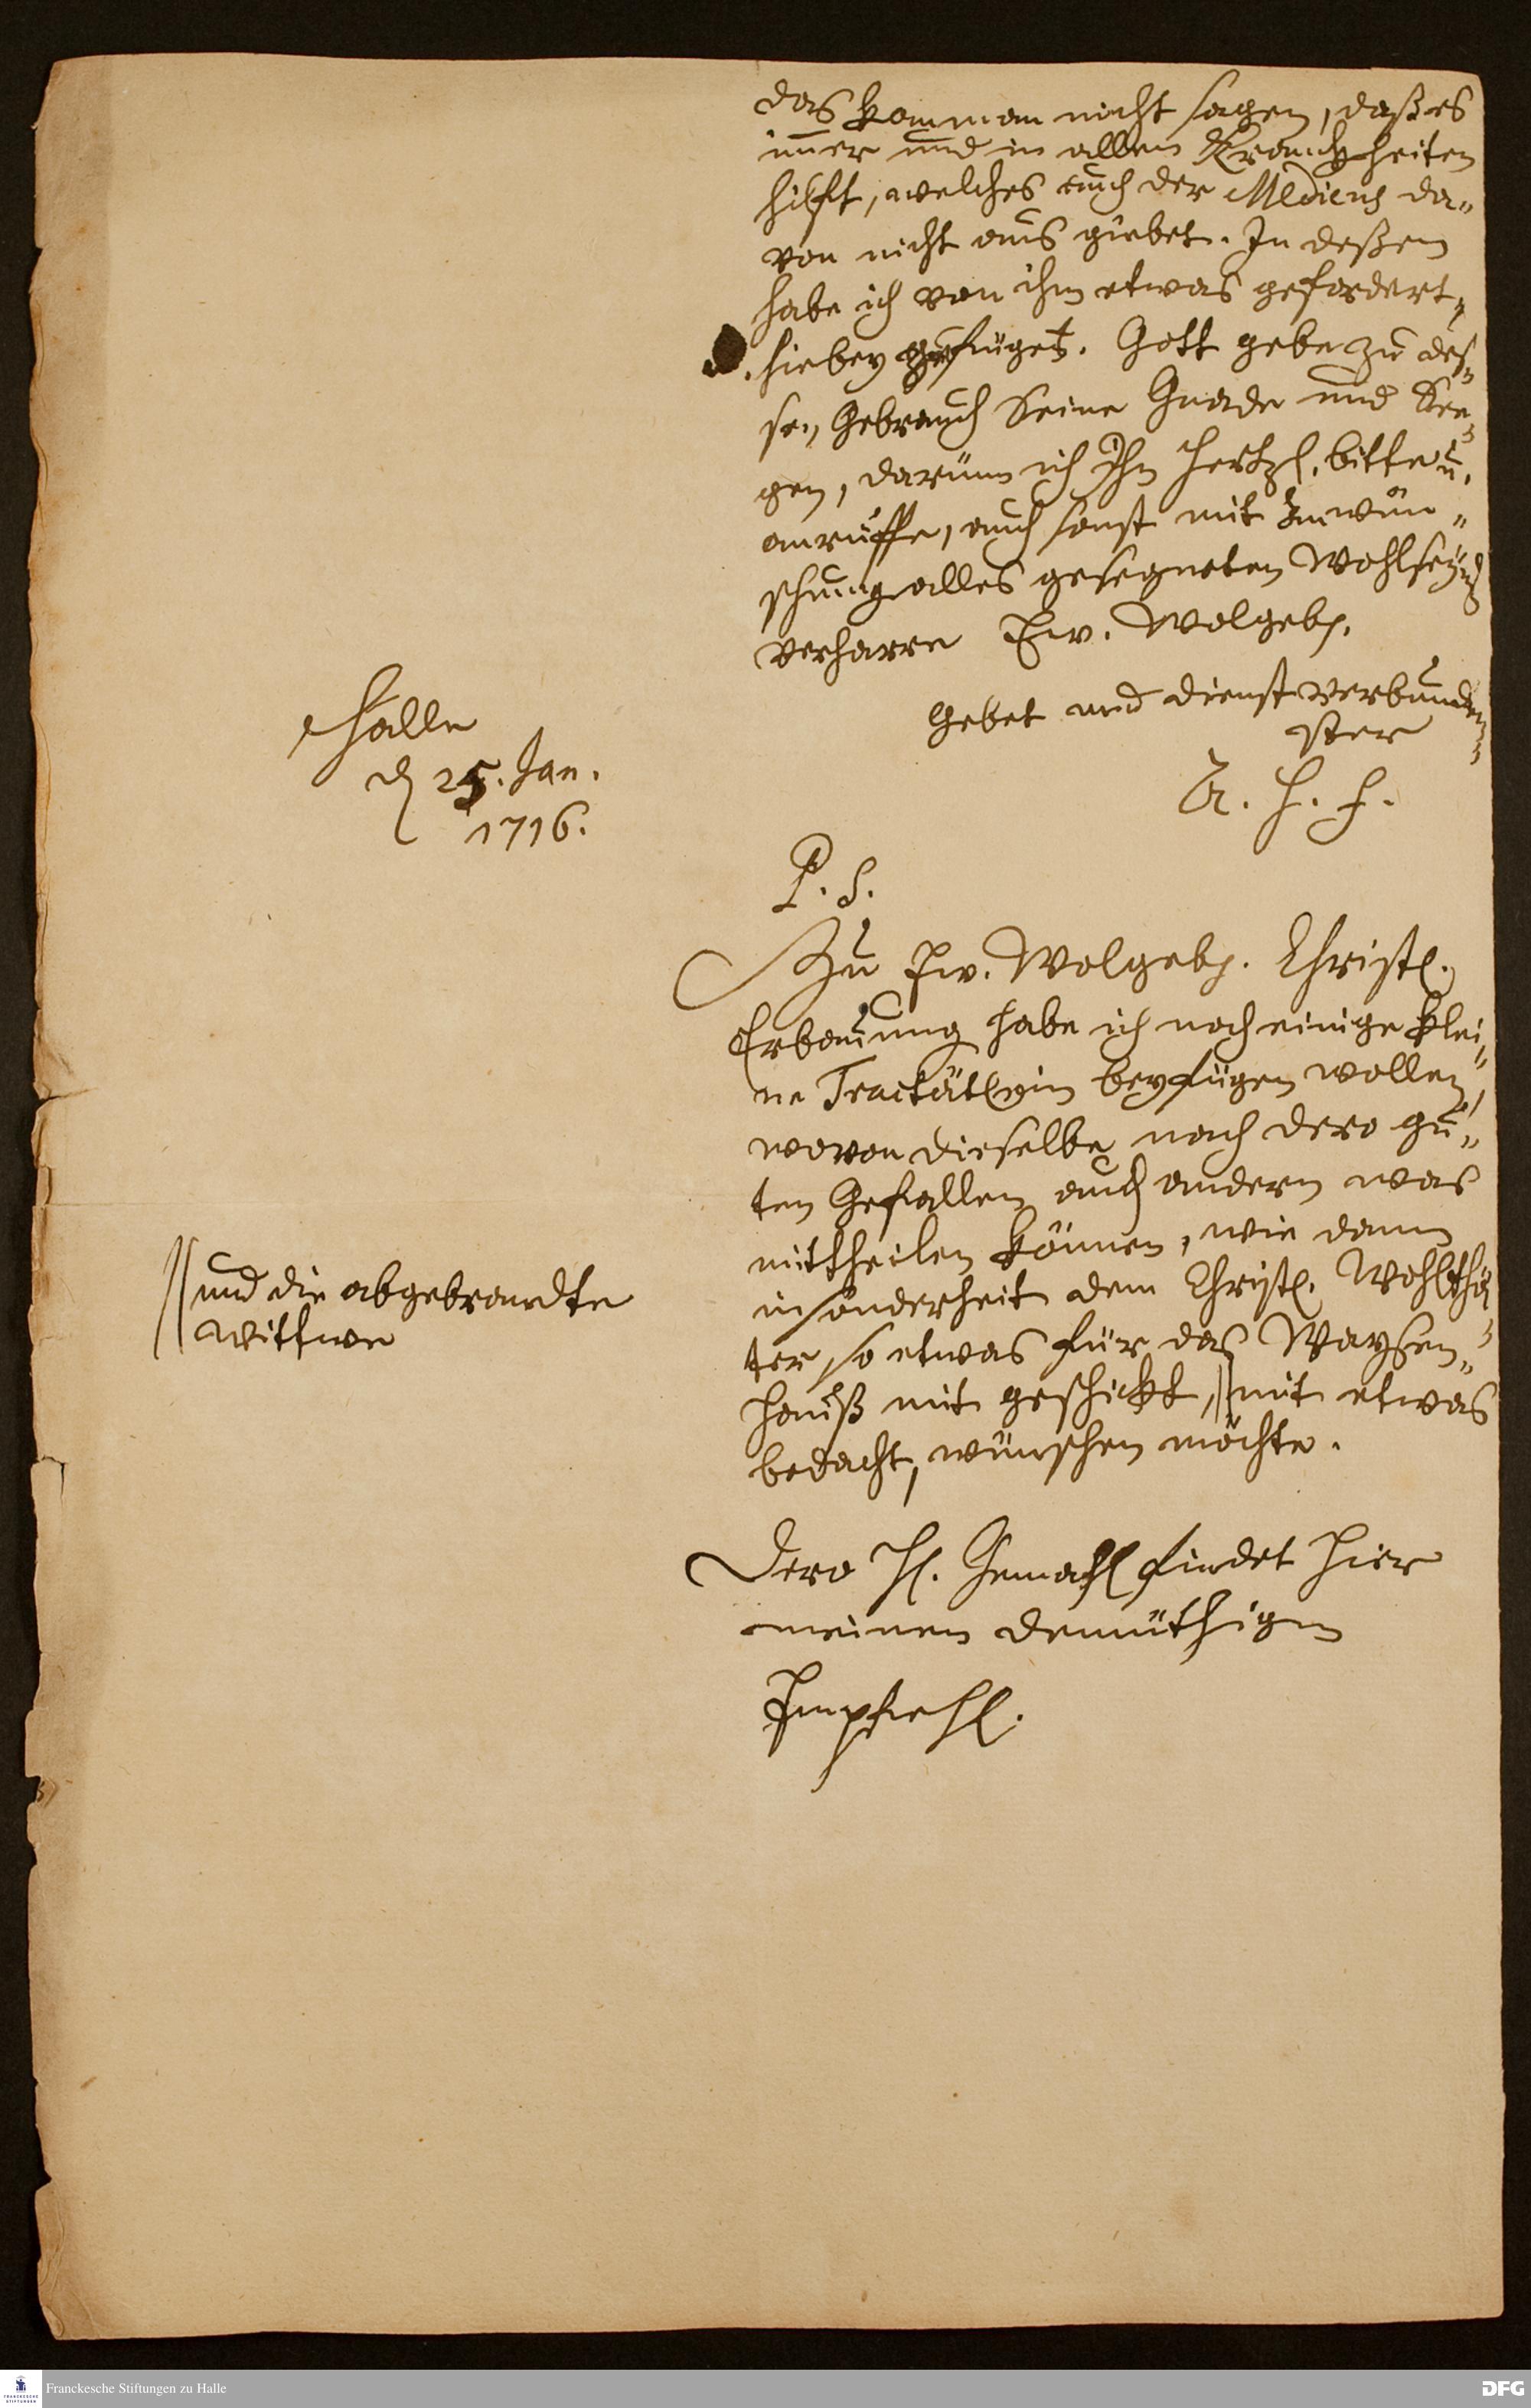 das kan man nicht sagen, daß es
im̅er und in allen Kranckheiten
hilfft, welches auch der Medicus da„
von nicht aus giebet. In deßen
habe ich von ihm etwas gefordert„
u. hiebey gefüget. Gott gebe zu des„
sen Gebrauch Seine Gnade und See„
gen, darum ich Ihn hertzl. bitte u.
anruffe, auch sonst mit Anwün„
schung alles gesegneten Wohlseyns
verharre Ew. Wolgeb.
Gebet und dienst verbunden„
ster
A. H. F.
Halle
d 25. Jan.
1716.
P. S.
Zu Ew. Wolgeb. Christl.
Erbauung habe ich noch einige klei„
ne Tractätlein beyfügen wollen,
wovon dieselbe nach dero gu„
ten Gefallen auch andern was
mittheilen können, wie dann
insonderheit dem Christl. Wohlthä„
ter, so etwas für das Waysen„
hauß mit geschickt, || mit etwas
bedacht, wünschen möchte.
|| und die abgebrandte
Wittwe
Dero H. Gemahl findet hier
meinen demüthigen
Empfehl.
Franckesche Stiftungen zu Halle
FRANCKESCHE
STIFTUNGEN
DFG